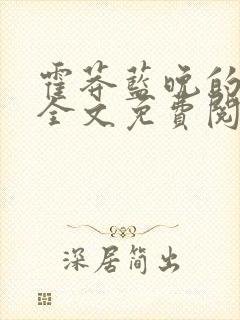 霍莽蓝晚的
全文免费阅
深居简出